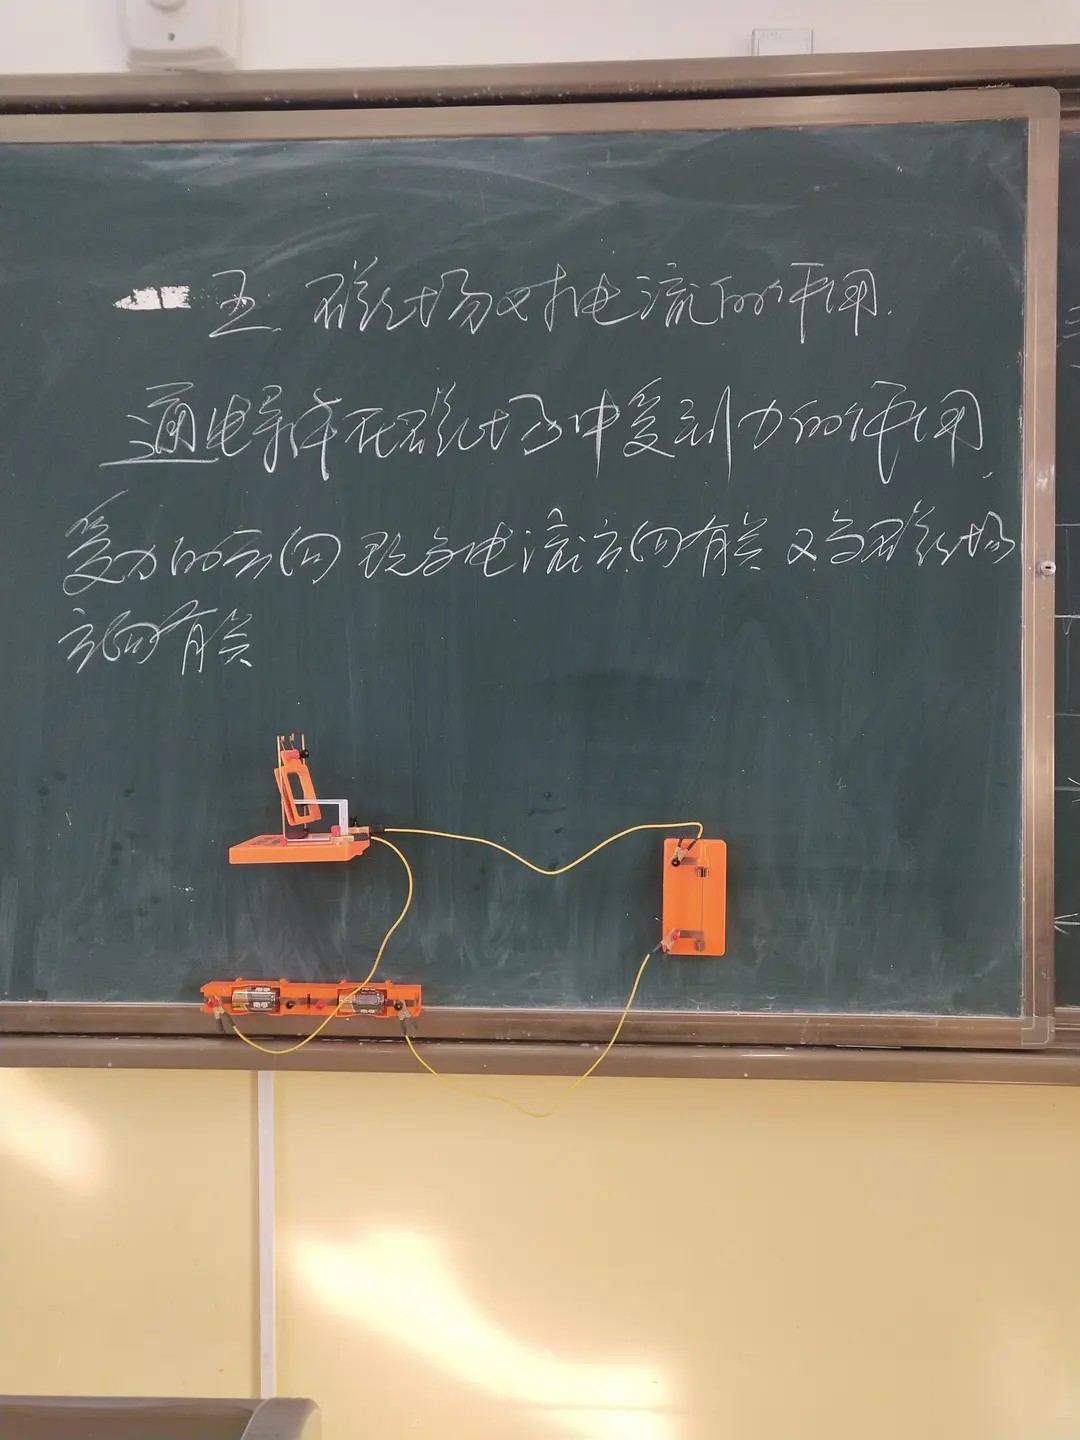 五. 磁场对电流的作用.
通电导体在磁场中受到力的作用.
受力的方向既与电流方向有关又与磁场
方向有关